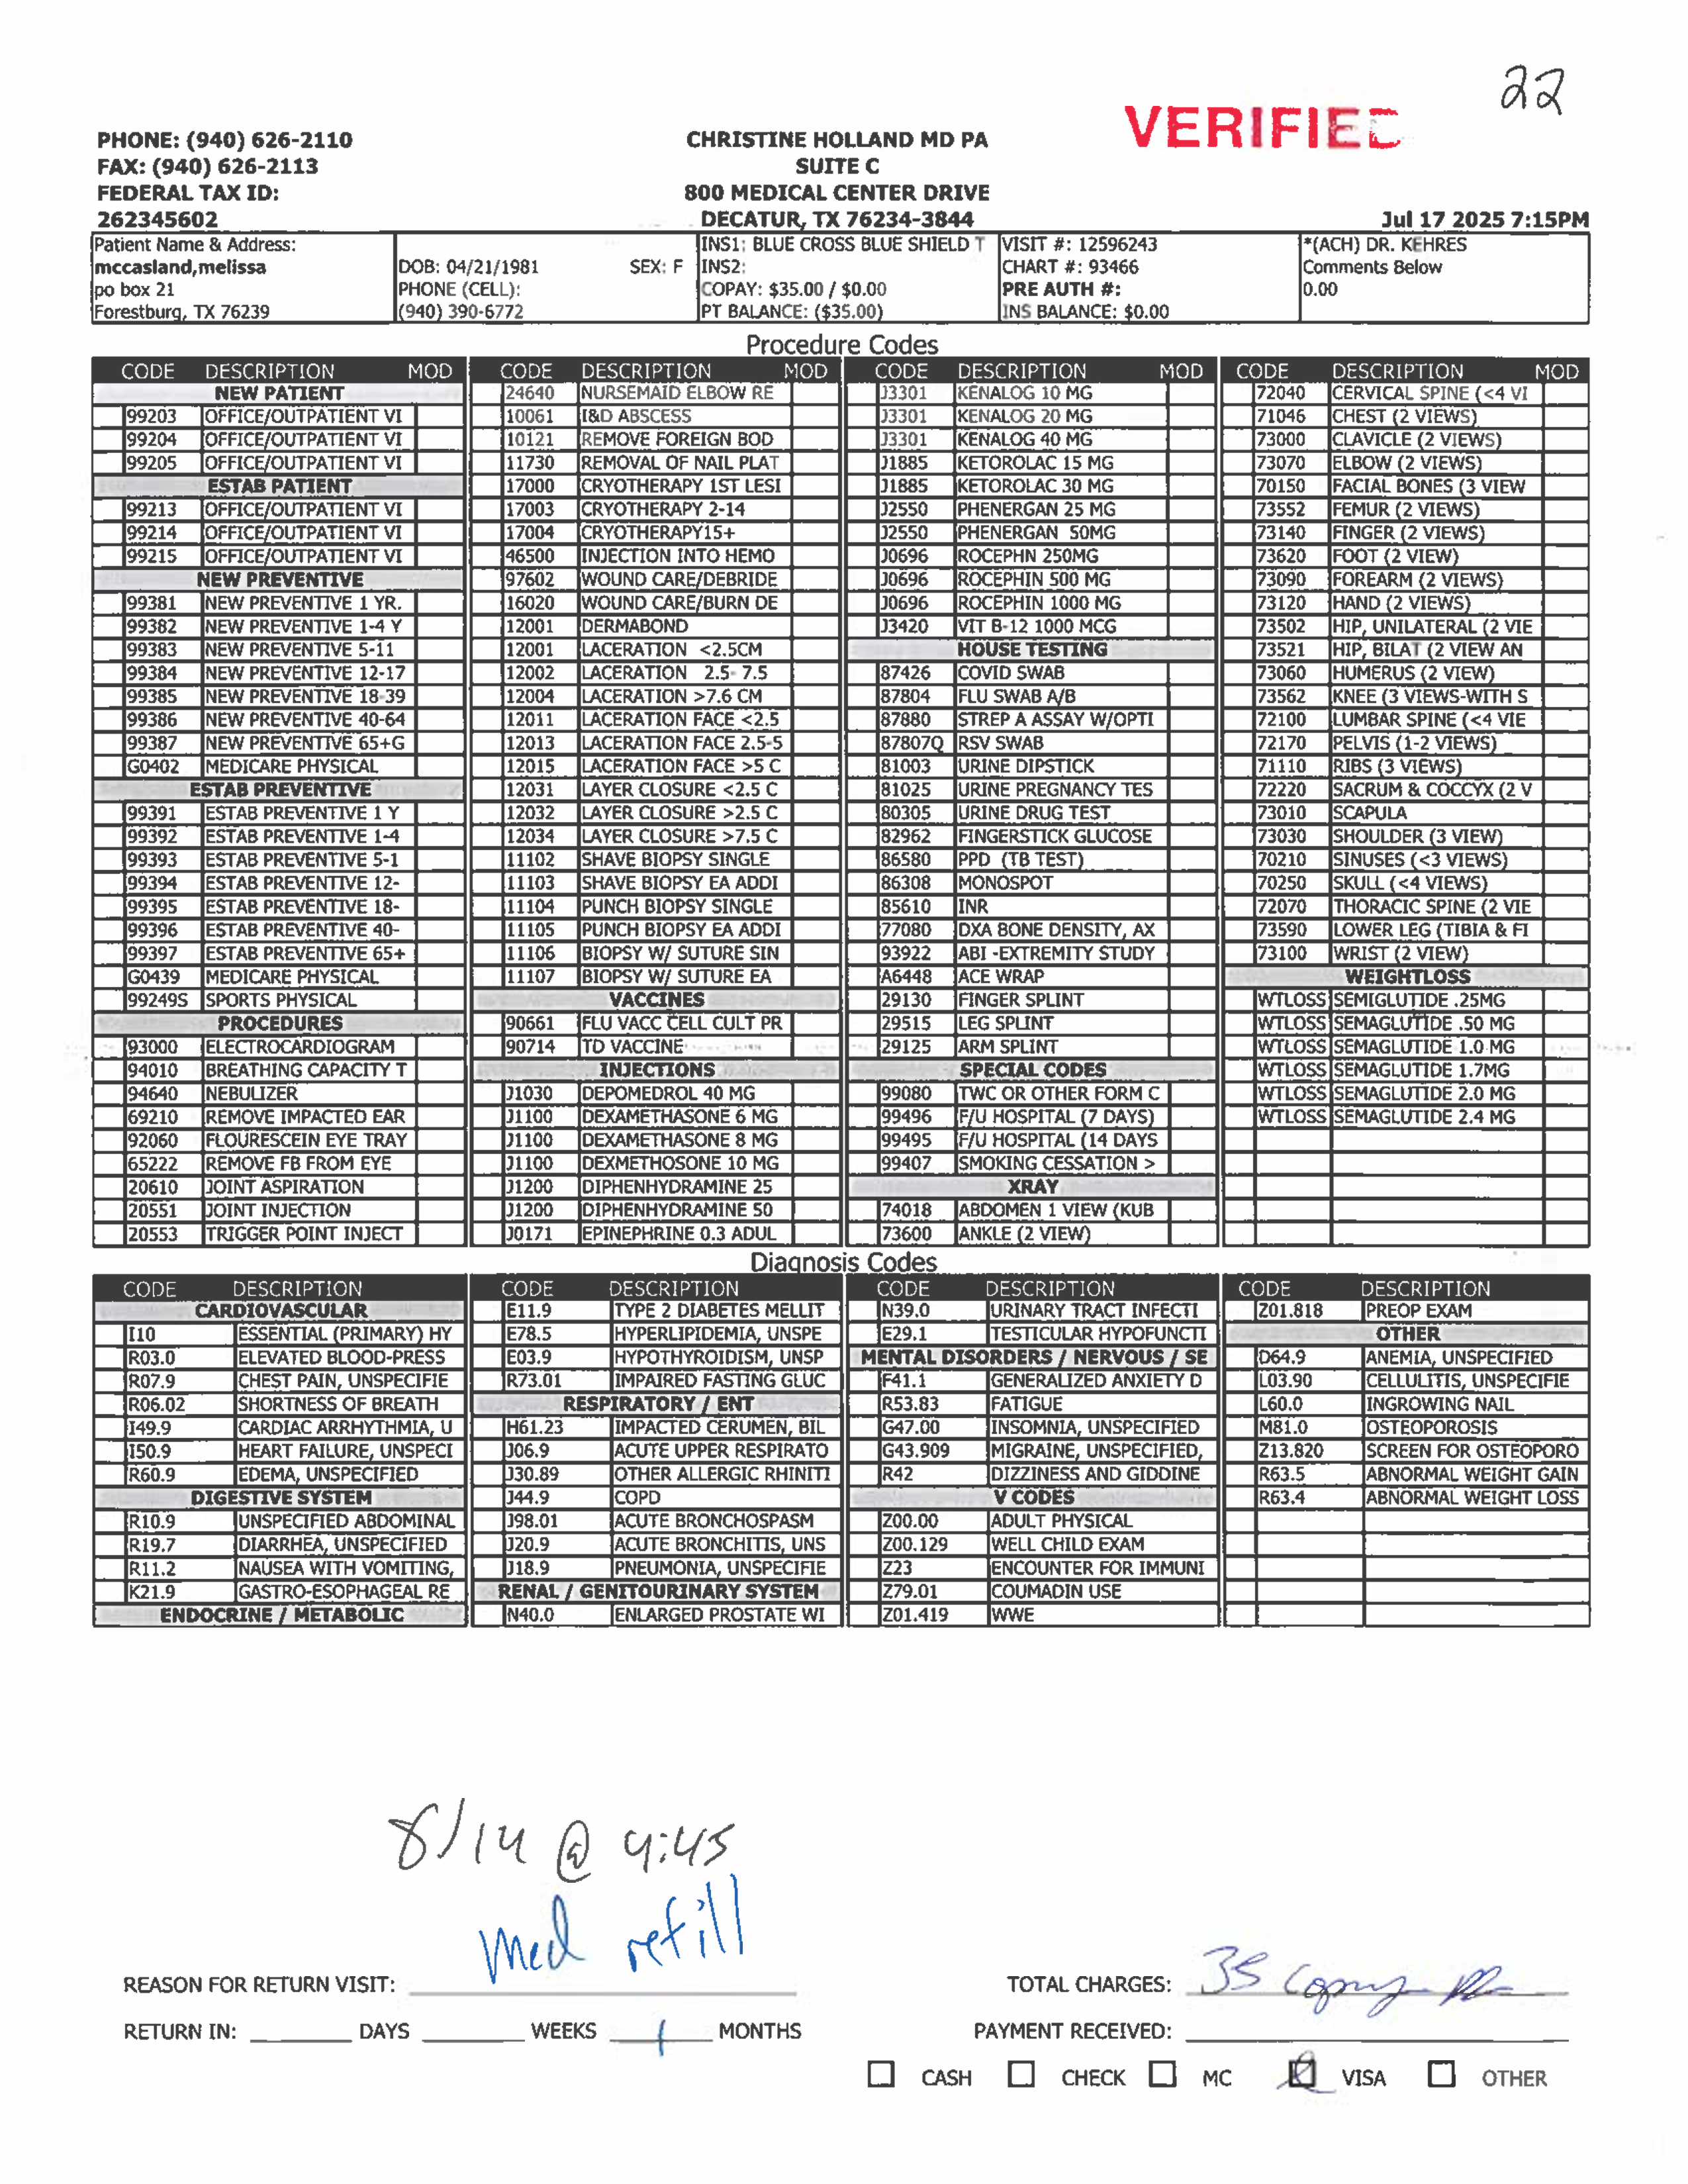 22
VERIFIED
PHONE: (940) 626-2110
FAX: (940) 626-2113
FEDERAL TAX ID:
262345602
CHRISTINE HOLLAND MD PA
SUITE C
800 MEDICAL CENTER DRIVE
DECATUR, TX 76234-3844
Jul 17 2025 7:15PM
Patient Name & Address:
mccasland,melissa
po box 21
Forestburg, TX 76239
DOB: 04/21/1981 SEX: F
PHONE (CELL):
(940) 390-6772
INS1: BLUE CROSS BLUE SHIELD T
INS2:
COPAY: $35.00 / $0.00
PT BALANCE: ($35.00)
VISIT #: 12596243
CHART #: 93466
PRE AUTH #:
INS BALANCE: $0.00
*(ACH) DR. KEHRES
Comments Below
0.00
Procedure Codes
CODE DESCRIPTION MOD
NEW PATIENT
99203 OFFICE/OUTPATIENT VI
99204 OFFICE/OUTPATIENT VI
99205 OFFICE/OUTPATIENT VI
ESTAB PATIENT
99213 OFFICE/OUTPATIENT VI
99214 OFFICE/OUTPATIENT VI
99215 OFFICE/OUTPATIENT VI
NEW PREVENTIVE
99381 NEW PREVENTIVE 1 YR.
99382 NEW PREVENTIVE 1-4 Y
99383 NEW PREVENTIVE 5-11
99384 NEW PREVENTIVE 12-17
99385 NEW PREVENTIVE 18-39
99386 NEW PREVENTIVE 40-64
99387 NEW PREVENTIVE 65+G
G0402 MEDICARE PHYSICAL
ESTAB PREVENTIVE
99391 ESTAB PREVENTIVE 1 Y
99392 ESTAB PREVENTIVE 1-4
99393 ESTAB PREVENTIVE 5-1
99394 ESTAB PREVENTIVE 12-
99395 ESTAB PREVENTIVE 18-
99396 ESTAB PREVENTIVE 40-
99397 ESTAB PREVENTIVE 65+
G0439 MEDICARE PHYSICAL
99249S SPORTS PHYSICAL
PROCEDURES
93000 ELECTROCARDIOGRAM
94010 BREATHING CAPACITY T
94640 NEBULIZER
69210 REMOVE IMPACTED EAR
92060 FLOURESCEIN EYE TRAY
65222 REMOVE FB FROM EYE
20610 JOINT ASPIRATION
20551 JOINT INJECTION
20553 TRIGGER POINT INJECT
CODE DESCRIPTION MOD
24640 NURSEMAID ELBOW RE
10061 I&D ABSCESS
10121 REMOVE FOREIGN BOD
11730 REMOVAL OF NAIL PLAT
17000 CRYOTHERAPY 1ST LESI
17003 CRYOTHERAPY 2-14
17004 CRYOTHERAPY15+
46500 INJECTION INTO HEMO
97602 WOUND CARE/DEBRIDE
16020 WOUND CARE/BURN DE
12001 DERMABOND
12001 LACERATION <2.5CM
12002 LACERATION 2.5- 7.5
12004 LACERATION >7.6 CM
12011 LACERATION FACE <2.5
12013 LACERATION FACE 2.5-5
12015 LACERATION FACE >5 C
12031 LAYER CLOSURE <2.5 C
12032 LAYER CLOSURE >2.5 C
12034 LAYER CLOSURE >7.5 C
11102 SHAVE BIOPSY SINGLE
11103 SHAVE BIOPSY EA ADDI
11104 PUNCH BIOPSY SINGLE
11105 PUNCH BIOPSY EA ADDI
11106 BIOPSY W/ SUTURE SIN
11107 BIOPSY W/ SUTURE EA
VACCINES
90661 FLU VACC CELL CULT PR
90714 TD VACCINE
INJECTIONS
J1030 DEPOMEDROL 40 MG
J1100 DEXAMETHASONE 6 MG
J1100 DEXAMETHASONE 8 MG
J1100 DEXMETHOSONE 10 MG
J1200 DIPHENHYDRAMINE 25
J1200 DIPHENHYDRAMINE 50
J0171 EPINEPHRINE 0.3 ADUL
CODE DESCRIPTION MOD
J3301 KENALOG 10 MG
J3301 KENALOG 20 MG
J3301 KENALOG 40 MG
J1885 KETOROLAC 15 MG
J1885 KETOROLAC 30 MG
J2550 PHENERGAN 25 MG
J2550 PHENERGAN 50MG
J0696 ROCEPHN 250MG
J0696 ROCEPHIN 500 MG
J0696 ROCEPHIN 1000 MG
J3420 VIT B-12 1000 MCG
HOUSE TESTING
87426 COVID SWAB
87804 FLU SWAB A/B
87880 STREP A ASSAY W/OPTI
87807Q RSV SWAB
81003 URINE DIPSTICK
81025 URINE PREGNANCY TES
80305 URINE DRUG TEST
82962 FINGERSTICK GLUCOSE
86580 PPD (TB TEST)
86308 MONOSPOT
85610 INR
77080 DXA BONE DENSITY, AX
93922 ABI -EXTREMITY STUDY
A6448 ACE WRAP
29130 FINGER SPLINT
29515 LEG SPLINT
29125 ARM SPLINT
SPECIAL CODES
99080 TWC OR OTHER FORM C
99496 F/U HOSPITAL (7 DAYS)
99495 F/U HOSPITAL (14 DAYS
99407 SMOKING CESSATION >
XRAY
74018 ABDOMEN 1 VIEW (KUB
73600 ANKLE (2 VIEW)
CODE DESCRIPTION MOD
72040 CERVICAL SPINE (<4 VI
71046 CHEST (2 VIEWS)
73000 CLAVICLE (2 VIEWS)
73070 ELBOW (2 VIEWS)
70150 FACIAL BONES (3 VIEW
73552 FEMUR (2 VIEWS)
73140 FINGER (2 VIEWS)
73620 FOOT (2 VIEW)
73090 FOREARM (2 VIEWS)
73120 HAND (2 VIEWS)
73502 HIP, UNILATERAL (2 VIE
73521 HIP, BILAT (2 VIEW AN
73060 HUMERUS (2 VIEW)
73562 KNEE (3 VIEWS-WITH S
72100 LUMBAR SPINE (<4 VIE
72170 PELVIS (1-2 VIEWS)
71110 RIBS (3 VIEWS)
72220 SACRUM & COCCYX (2 V
73010 SCAPULA
73030 SHOULDER (3 VIEW)
70210 SINUSES (<3 VIEWS)
70250 SKULL (<4 VIEWS)
72070 THORACIC SPINE (2 VIE
73590 LOWER LEG (TIBIA & FI
73100 WRIST (2 VIEW)
WEIGHTLOSS
WTLOSS SEMIGLUTIDE .25MG
WTLOSS SEMAGLUTIDE .50 MG
WTLOSS SEMAGLUTIDE 1.0 MG
WTLOSS SEMAGLUTIDE 1.7MG
WTLOSS SEMAGLUTIDE 2.0 MG
WTLOSS SEMAGLUTIDE 2.4 MG
Diagnosis Codes
CODE DESCRIPTION
CARDIOVASCULAR
I10 ESSENTIAL (PRIMARY) HY
R03.0 ELEVATED BLOOD-PRESS
R07.9 CHEST PAIN, UNSPECIFIE
R06.02 SHORTNESS OF BREATH
I49.9 CARDIAC ARRHYTHMIA, U
I50.9 HEART FAILURE, UNSPECI
R60.9 EDEMA, UNSPECIFIED
DIGESTIVE SYSTEM
R10.9 UNSPECIFIED ABDOMINAL
R19.7 DIARRHEA, UNSPECIFIED
R11.2 NAUSEA WITH VOMITING,
K21.9 GASTRO-ESOPHAGEAL RE
ENDOCRINE / METABOLIC
CODE DESCRIPTION
E11.9 TYPE 2 DIABETES MELLIT
E78.5 HYPERLIPIDEMIA, UNSPE
E03.9 HYPOTHYROIDISM, UNSP
R73.01 IMPAIRED FASTING GLUC
RESPIRATORY / ENT
H61.23 IMPACTED CERUMEN, BIL
J06.9 ACUTE UPPER RESPIRATO
J30.89 OTHER ALLERGIC RHINITI
J44.9 COPD
J98.01 ACUTE BRONCHOSPASM
J20.9 ACUTE BRONCHITIS, UNS
J18.9 PNEUMONIA, UNSPECIFIE
RENAL / GENITOURINARY SYSTEM
N40.0 ENLARGED PROSTATE WI
CODE DESCRIPTION
N39.0 URINARY TRACT INFECTI
E29.1 TESTICULAR HYPOFUNCTI
MENTAL DISORDERS / NERVOUS / SE
F41.1 GENERALIZED ANXIETY D
R53.83 FATIGUE
G47.00 INSOMNIA, UNSPECIFIED
G43.909 MIGRAINE, UNSPECIFIED,
R42 DIZZINESS AND GIDDINE
V CODES
Z00.00 ADULT PHYSICAL
Z00.129 WELL CHILD EXAM
Z23 ENCOUNTER FOR IMMUNI
Z79.01 COUMADIN USE
Z01.419 WWE
CODE DESCRIPTION
Z01.818 PREOP EXAM
OTHER
D64.9 ANEMIA, UNSPECIFIED
L03.90 CELLULITIS, UNSPECIFIE
L60.0 INGROWING NAIL
M81.0 OSTEOPOROSIS
Z13.820 SCREEN FOR OSTEOPORO
R63.5 ABNORMAL WEIGHT GAIN
R63.4 ABNORMAL WEIGHT LOSS
8/14 @ 4:45
REASON FOR RETURN VISIT: Med refill
RETURN IN: DAYS WEEKS 1 MONTHS
TOTAL CHARGES: 35 Copay
PAYMENT RECEIVED:
CASH CHECK MC VISA OTHER